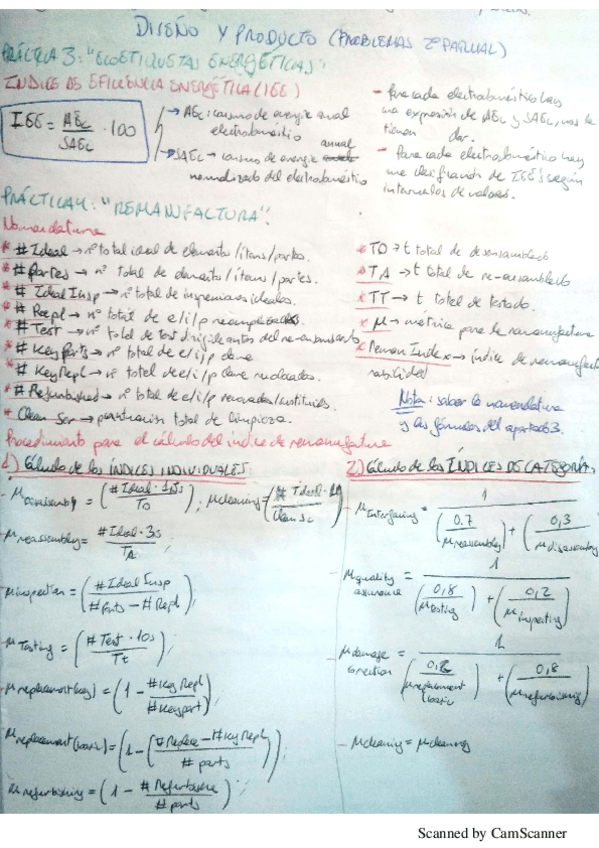 DISEÑO Y PRODUCTO (PROBLEMAS 2º PARCIAL)
PRÁCTICA 3: "ECOETIQUETAS ENERGÉTICAS".
ÍNDICE DE EFICIENCIA ENERGÉTICA (IEE)
IEE = AEc / SAEc · 100
→ AEc: consumo de energía anual
electrodoméstico
→ SAEc → consumo de energía anual
normalizado del electrodoméstico
- Para cada electrodoméstico hay
una expresión de AEc y SAEc, nos la
tienen dar.
- Para cada electrodoméstico hay
una clasificación de IEE según
intervalos de valores.
PRÁCTICA 4: "REMANUFACTURA".
Nomenclatura
* # Ideal → nº total ideal de elementos/ítems/partes.
* # partes → nº total de elementos/ítems/partes.
* # Ideal Insp → nº total de inspecciones ideales.
* # Repl → nº total de e/i/p reemplazados
* # Test → nº total de test antes del reensamblado
* # Key Parts → nº total de e/i/p clave
* # Key Repl → nº total de e/i/p clave
* # Refurbished → nº total de e/i/p
* Clean Scr → puntuación total de limpieza.
* TD → t total de desensamblado
* TA → t total de re-ensamblado
* TT → t total de testado.
* μ → métrica para la remanufactura
* Reman Index → índice de
Nota: saber la nomenclatura
y las fórmulas del apartado 3.
Procedimiento para el cálculo del índice de remanufactura
1) Cálculo de los ÍNDICES INDIVIDUALES:
- μ disassembly = (# Ideal · 1,5s / TD) ; μ cleaning = (# Ideal · / Clean Sc)
- μ reassembly = # Ideal · 3s / TA ;
- μ inspection = (# Ideal Insp / # Parts - # Repl) ;
- μ Testing = (# Test · 10s / Tt) ;
- μ replacement (key) = (1 - # Key Repl / # Keypart) ;
- μ replacement (basic) = (1 - (# Replace - # Key Repl) / # parts) ;
μ refurbishing = (1 - # Refurbished / # parts) ;
2) Cálculo de los ÍNDICES DE CATEGORÍA:
- μ Interfacing = 1 / (0.7 / μ reassembly) + (0,3 / μ disassembly)
μ quality assurance = 1 / (0,8 / μ testing) + (0,2 / μ inspecting)
μ damage correction = 1 / (0,2 / μ replacement basic) + (0,8 / μ refurbishing)
- μ cleaning = μ cleaning
Scanned by CamScanner